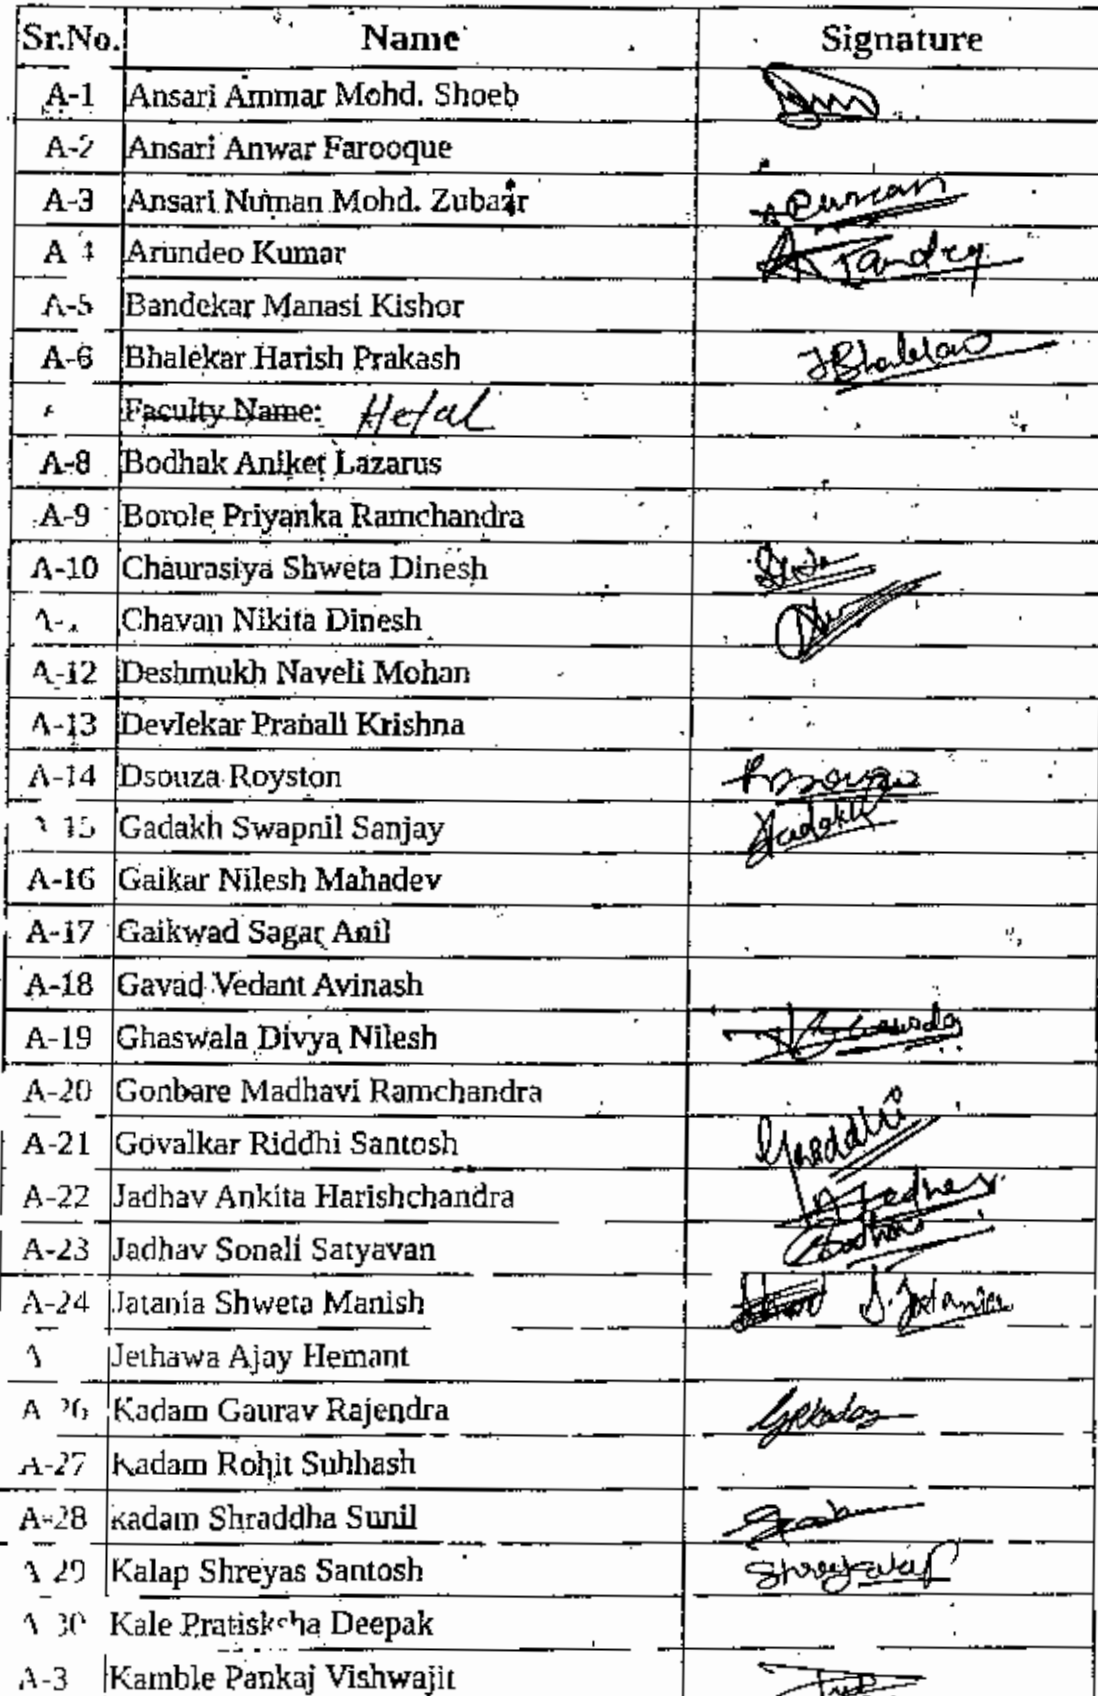 Sr.No. Name Signature
A-1 Ansari Ammar Mohd. Shoeb
A-2 Ansari Anwar Farooque
A-3 Ansari Numan Mohd. Zubair
A-4 Arundeo Kumar A Pandey
A-5 Bandekar Manasi Kishor
A-6 Bhalekar Harish Prakash
Faculty Name: Hetal
A-8 Bodhak Aniket Lazarus
A-9 Borole Priyanka Ramchandra
A-10 Chaurasiya Shweta Dinesh
A- Chavan Nikita Dinesh
A-12 Deshmukh Naveli Mohan
A-13 Devlekar Pranali Krishna
A-14 Dsouza Royston
A-15 Gadakh Swapnil Sanjay Gadakh
A-16 Gaikar Nilesh Mahadev
A-17 Gaikwad Sagar Anil
A-18 Gavad Vedant Avinash
A-19 Ghaswala Divya Nilesh
A-20 Gonbare Madhavi Ramchandra
A-21 Govalkar Riddhi Santosh
A-22 Jadhav Ankita Harishchandra
A-23 Jadhav Sonali Satyavan
A-24 Jatania Shweta Manish S. Jatania
A Jethawa Ajay Hemant
A-26 Kadam Gaurav Rajendra
A-27 Kadam Rohit Subhash
A-28 kadam Shraddha Sunil
A-29 Kalap Shreyas Santosh
A-30 Kale Pratisksha Deepak
A-3 Kamble Pankaj Vishwajit